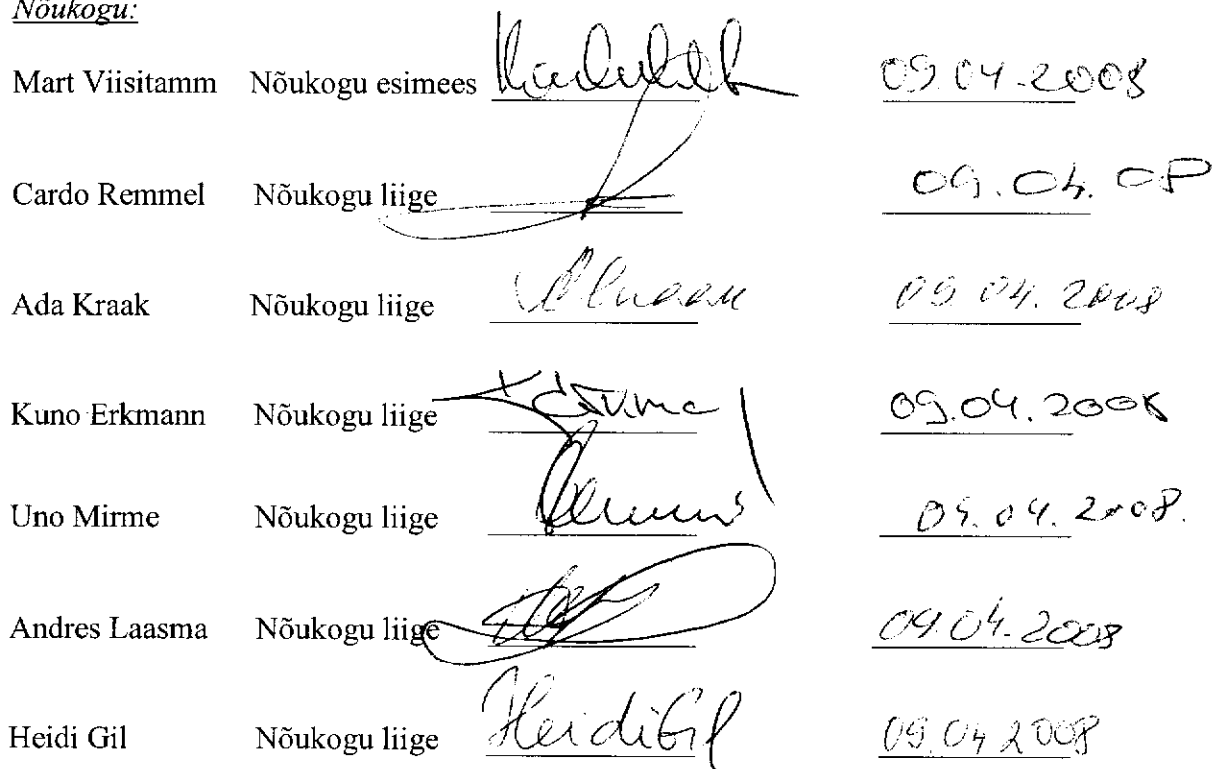 Nõukogu:
Mart Viisitamm Nõukogu esimees 09.04.2008
Cardo Remmel Nõukogu liige 09.04.08
Ada Kraak Nõukogu liige 09.04.2008
Kuno Erkmann Nõukogu liige 09.04.2008
Uno Mirme Nõukogu liige 09.04.2008.
Andres Laasma Nõukogu liige 09.04.2008
Heidi Gil Nõukogu liige HeidiGil 09.04 2008